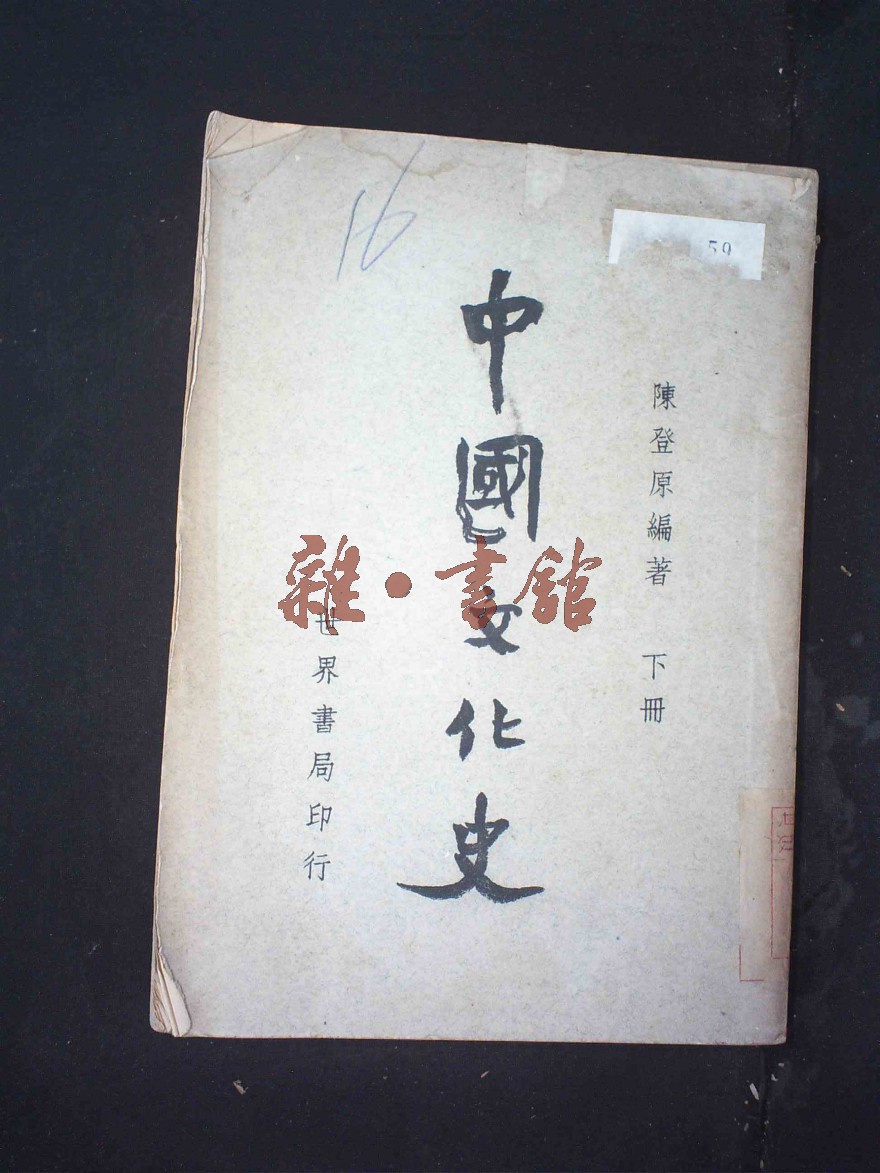 16
50
陳登原編著 下冊
中國文化史
世界書局印行
雜·書館